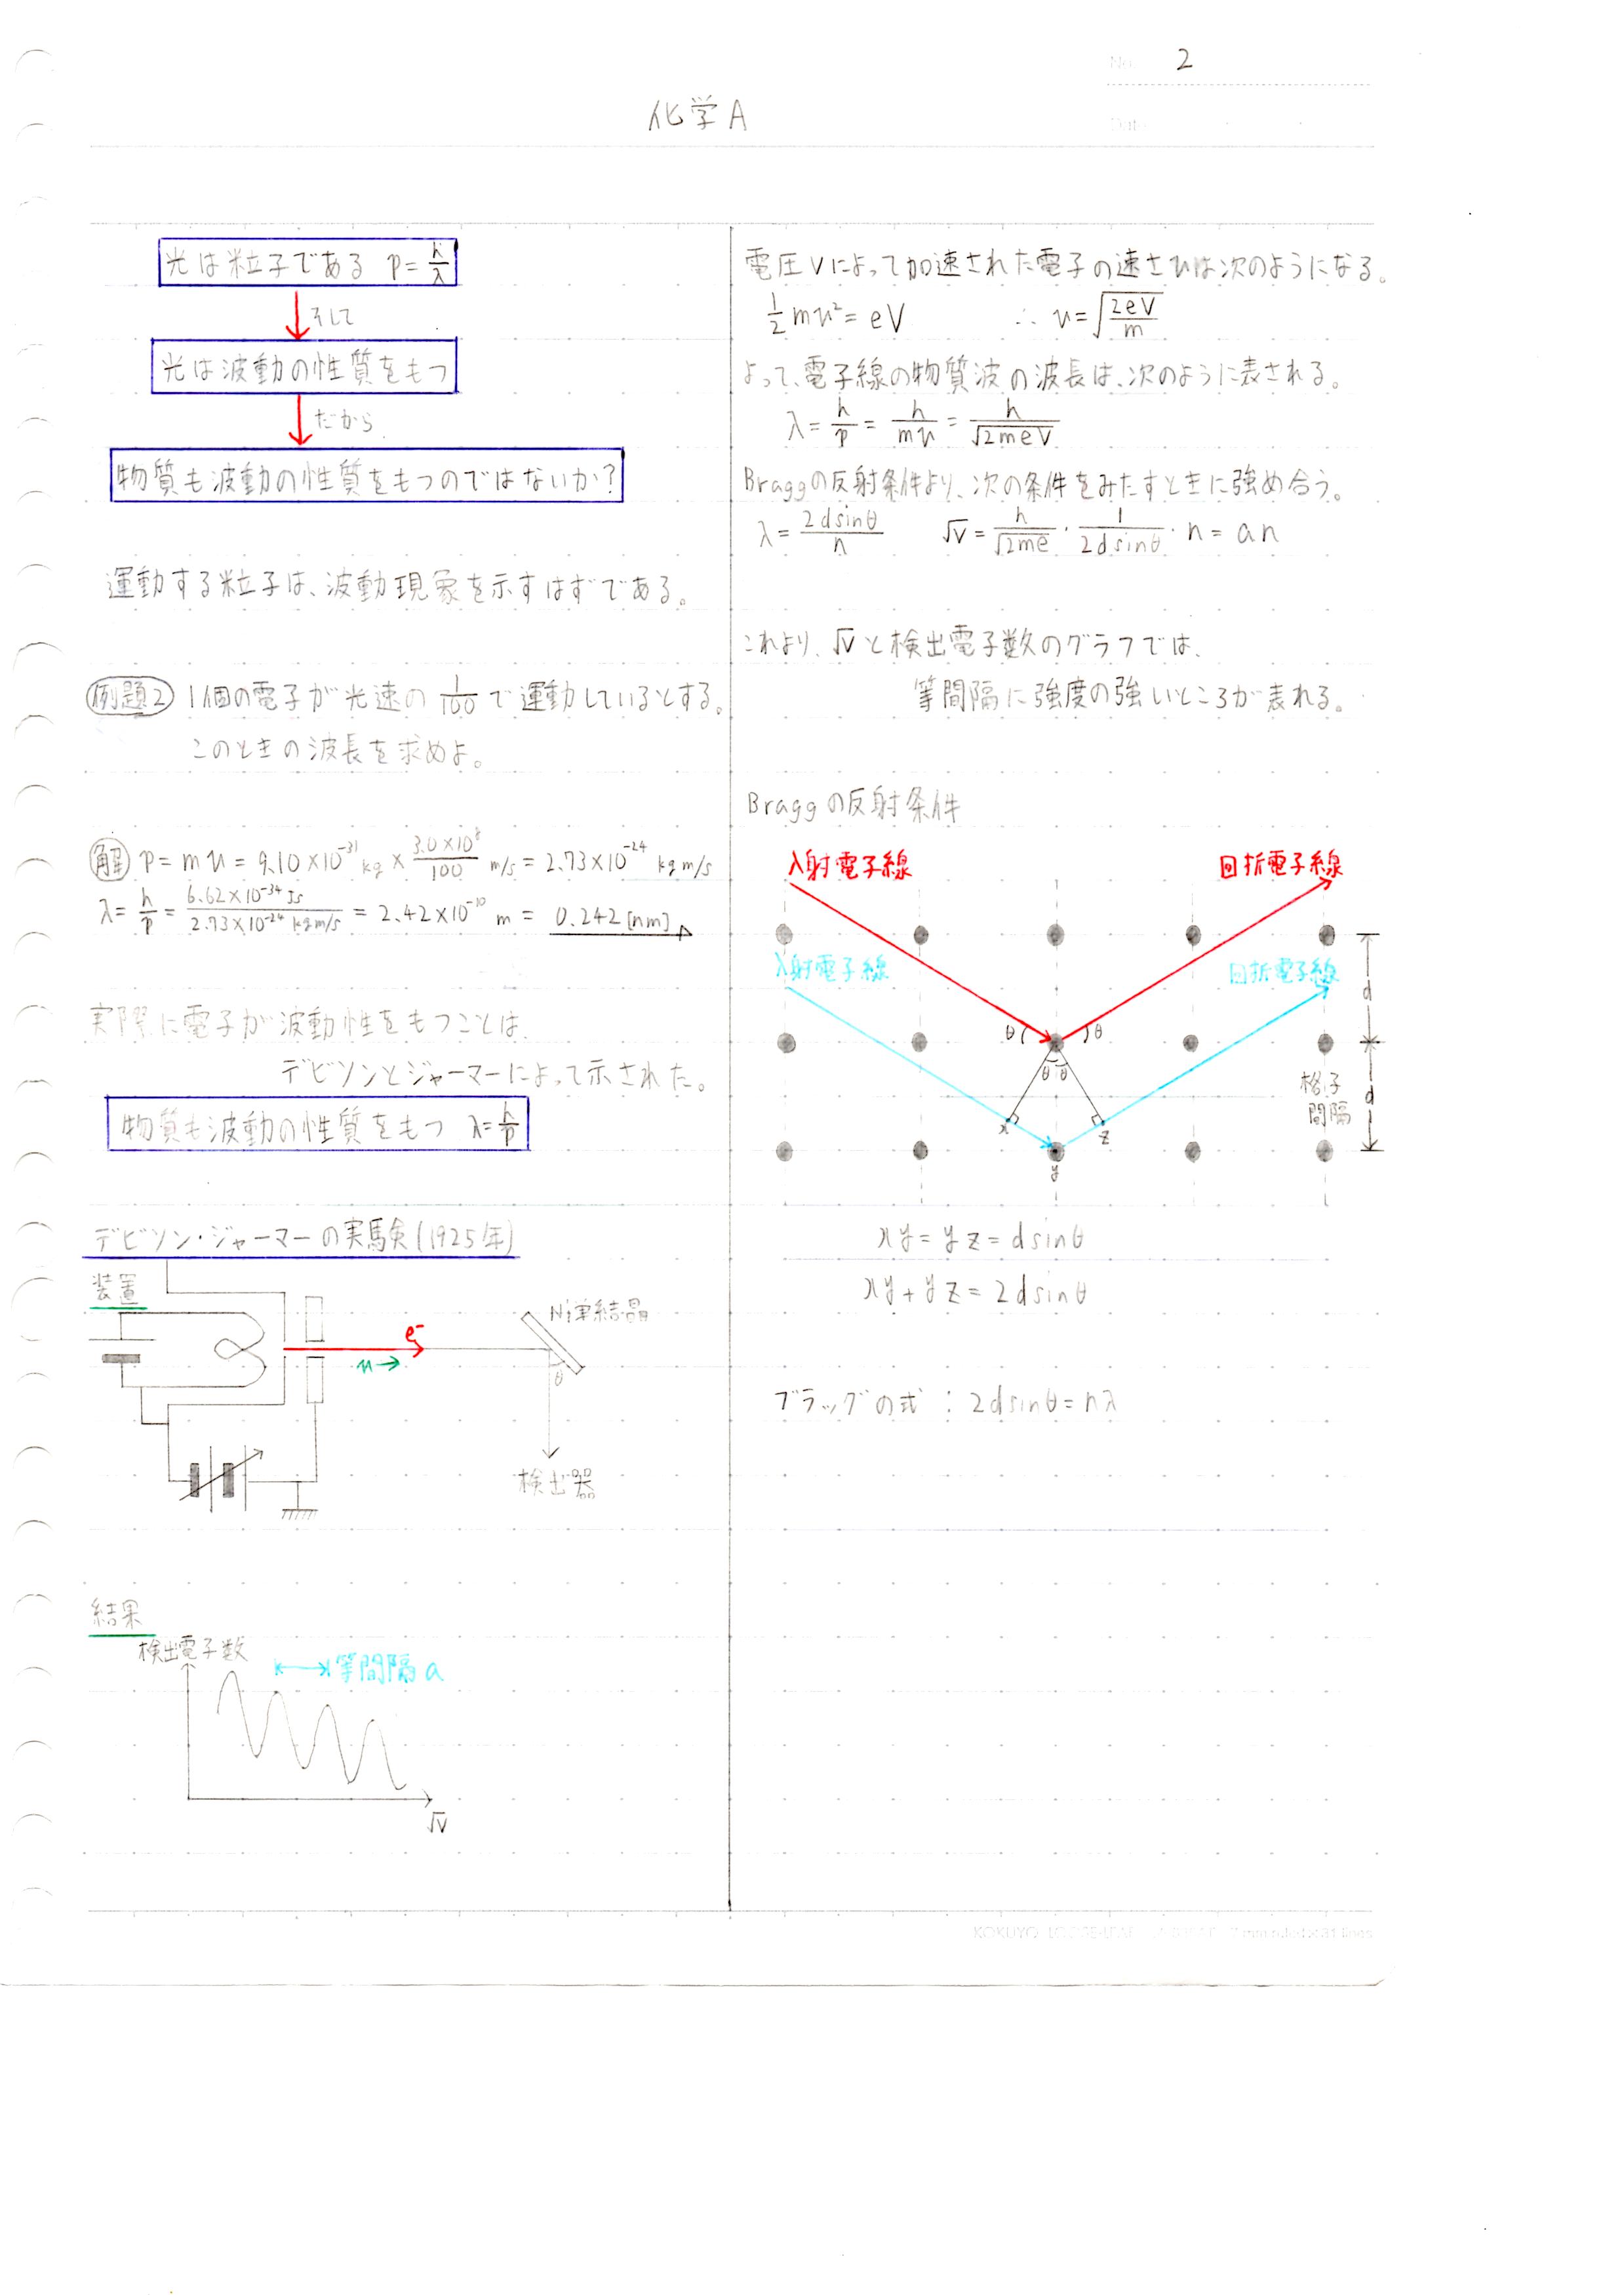 No. 2
化学A
Date
光は粒子である p=h/λ
そして
光は波動の性質をもつ
だから
物質も波動の性質をもつのではないか?
運動する粒子は、波動現象を示すはずである。
例題2 1個の電子が光速の 1/100 で運動しているとする。
このときの波長を求めよ。
解 p = mu = 9.10×10⁻³¹ kg × 3.0×10⁸/100 m/s = 2.73×10⁻²⁴ kg m/s
λ = h/p = 6.62×10⁻³⁴ Js / 2.73×10⁻²⁴ kg m/s = 2.42×10⁻¹⁰ m = 0.242 [nm]
実際に電子が波動性をもつことは、
デビソンとジャーマーによって示された。
物質も波動の性質をもつ λ=h/p
デビソン・ジャーマーの実験(1925年)
装置
e⁻
u→
Ni単結晶
θ
検出器
結果
検出電子数
等間隔a
√V
電圧Vによって加速された電子の速さuは次のようになる。
1/2 mu² = eV ∴ u=√(2eV/m)
よって、電子線の物質波の波長は、次のように表される。
λ = h/p = h/mu = h/√(2meV)
Braggの反射条件より、次の条件をみたすときに強め合う。
λ = 2dsinθ/n √V = h/√(2me) · 1/2dsinθ · n = an
これより、√Vと検出電子数のグラフでは、
等間隔に強度の強いところが表れる。
Braggの反射条件
入射電子線 回折電子線
入射電子線 回折電子線
d
θ θ
θ θ
格子
間隔
d
x z
y
xy = yz = dsinθ
xy + yz = 2dsinθ
ブラッグの式 : 2dsinθ = nλ